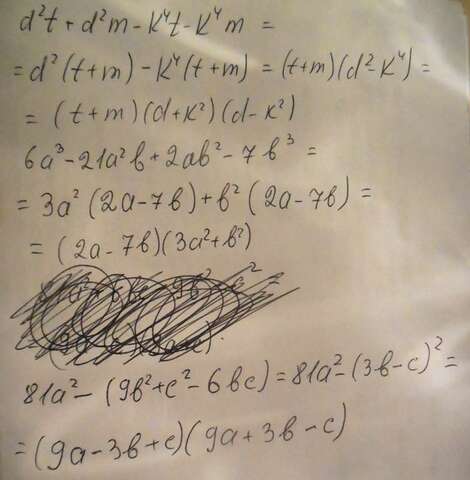 d²t + d²m - k⁴t - k⁴m =
= d²(t+m) - k⁴(t+m) = (t+m)(d²-k⁴) =
= (t+m)(d+k²)(d-k²)
6a³-21a²b+2ab²-7b³ =
= 3a²(2a-7b)+b²(2a-7b) =
= (2a-7b)(3a²+b²)
81a²-(9b²+c²-6bc)=81a²-(3b-c)²=
=(9a-3b+c)(9a+3b-c)